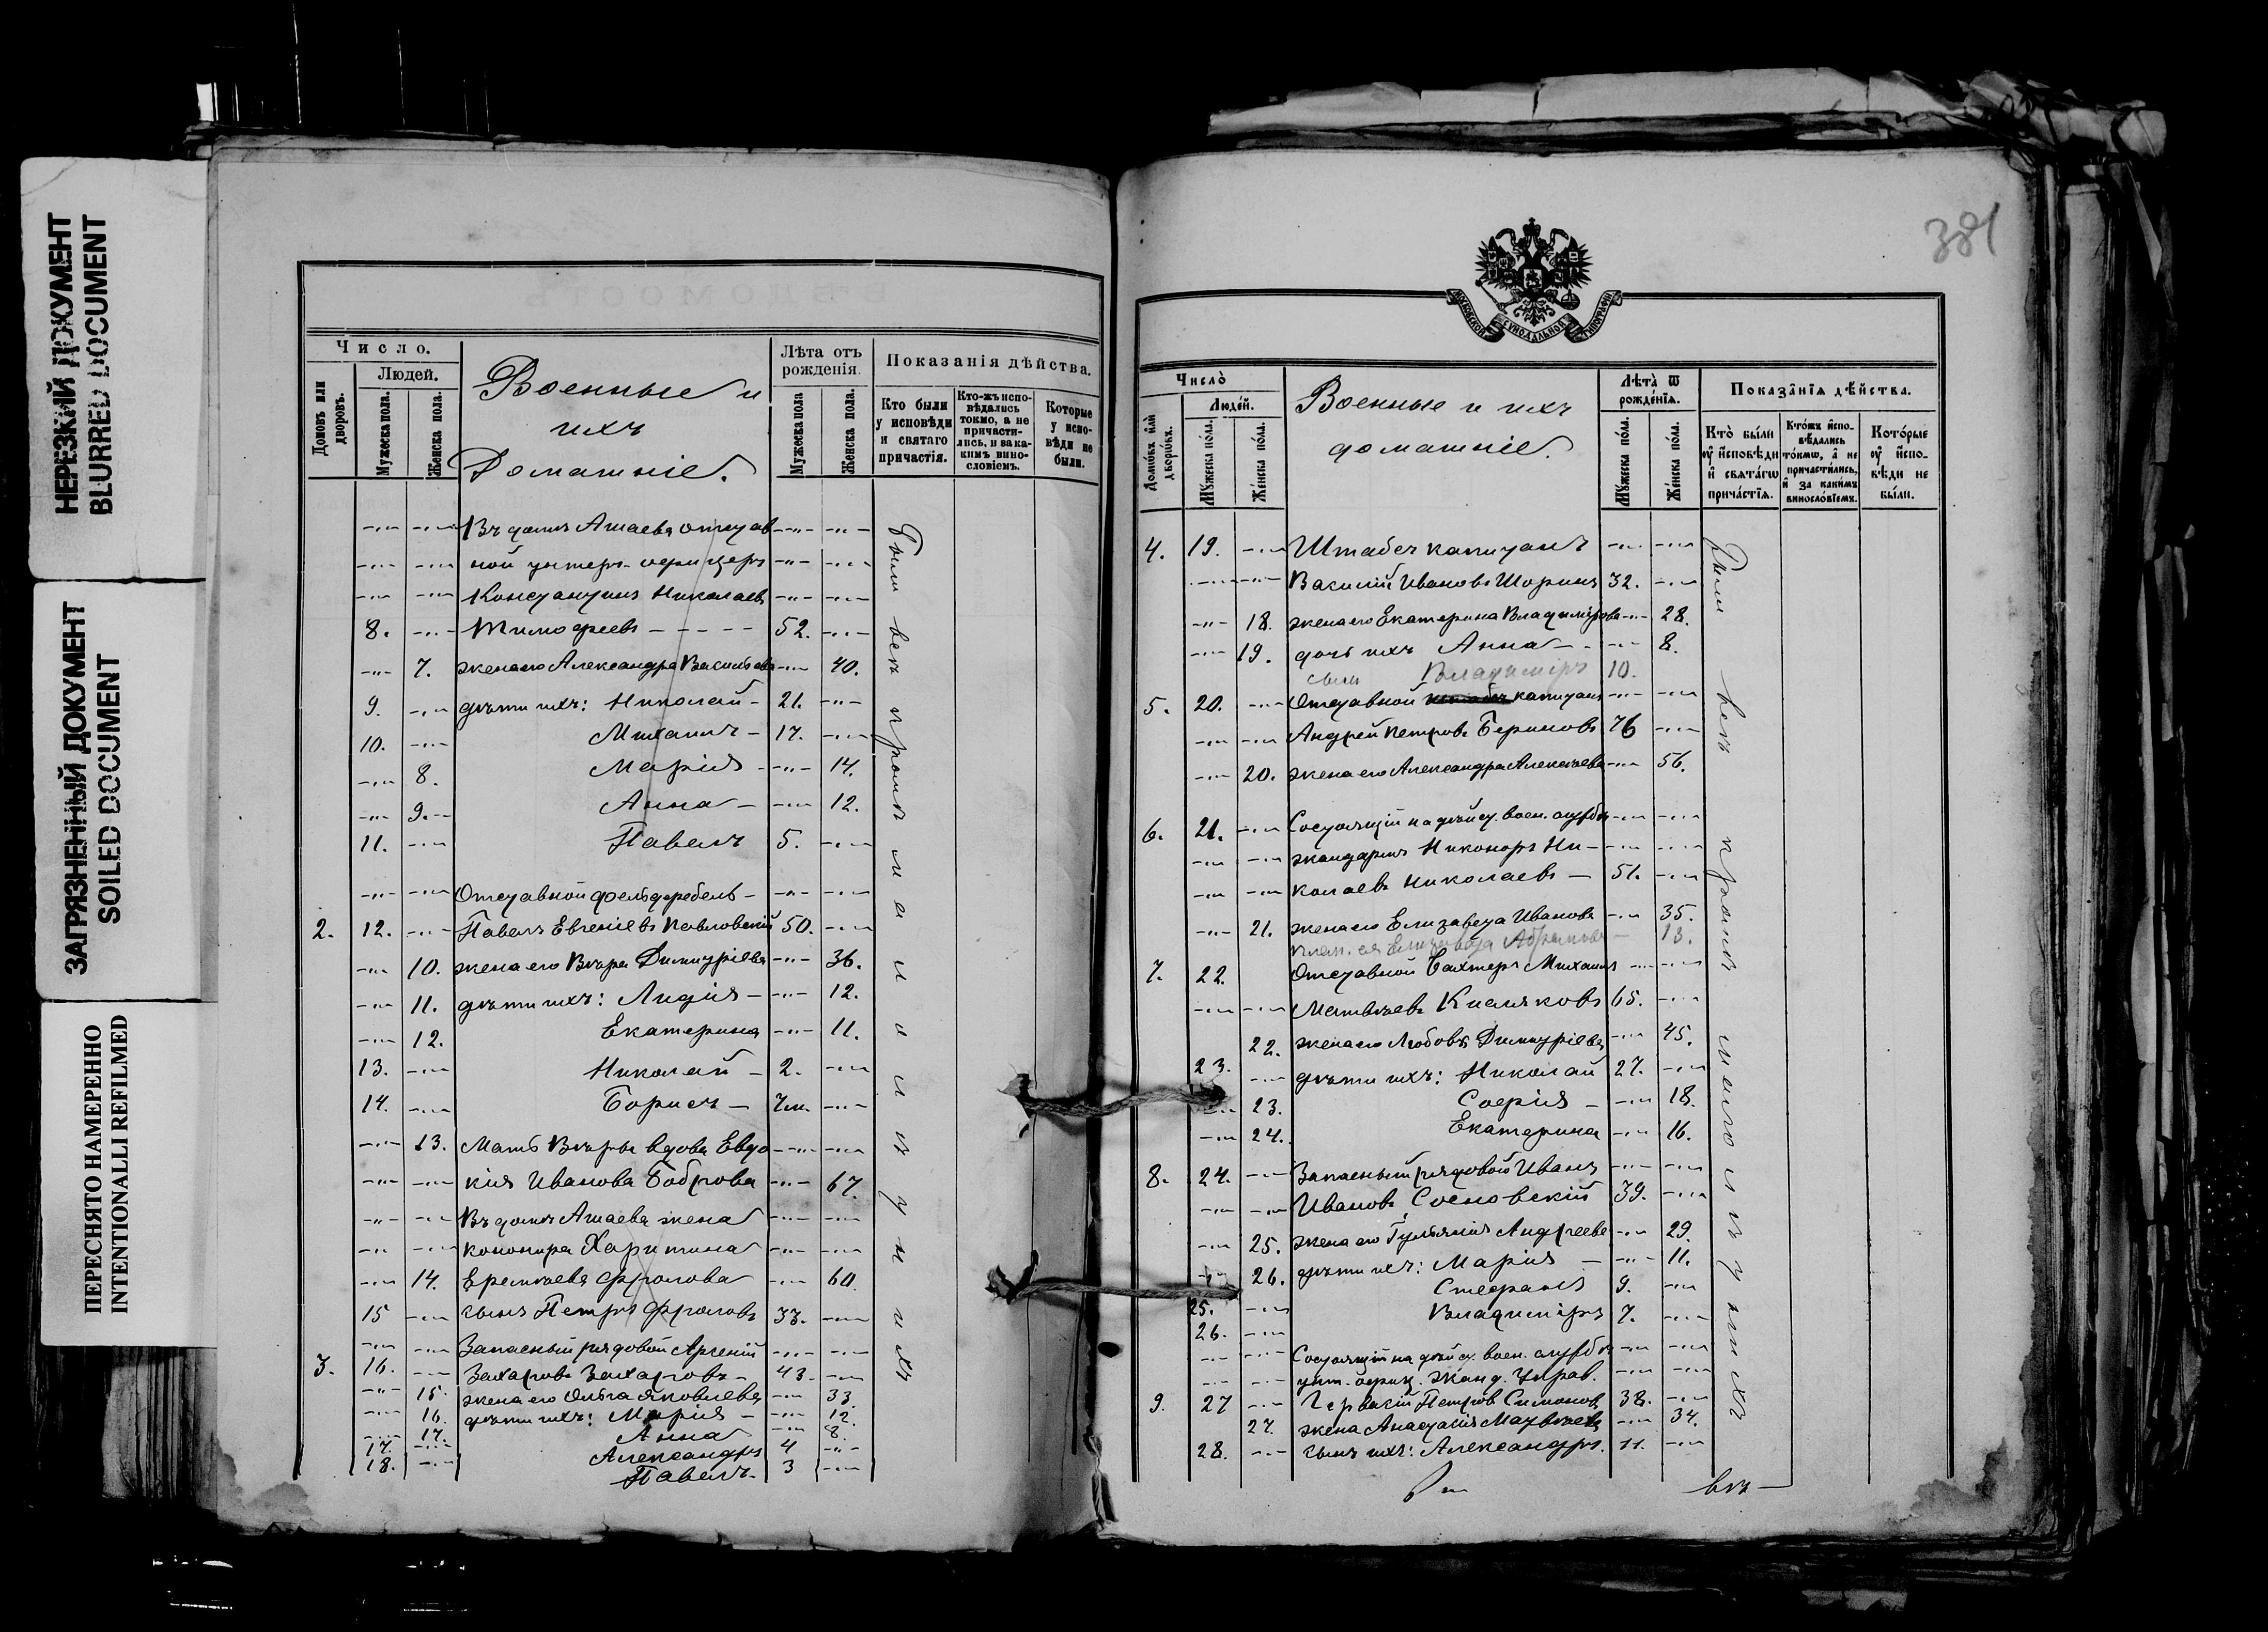 НЕРЕЗКИЙ ДОКУМЕНТ
BLURRED DOCUMENT
ЗАГРЯЗНЕННЫЙ ДОКУМЕНТ
SOILED DOCUMENT
ПЕРЕСНЯТО НАМЕРЕННО
INTENTIONALLI REFILMED
Число.
Людей.
Домовъ или дворовъ.
Мужеска пола.
Женска пола.
Военные и
ихъ
Домашніе.
Лѣта отъ рожденія.
Мужеска пола
Женска пола.
Показанія дѣйства.
Кто были у исповѣди и святаго причастія.
Кто-жъ испо-вѣдались токмо, а не причасти-лись, и за ка-кимъ вино-словіемъ.
Которые у испо-вѣди не были.
Въ домѣ Ашаева отстав
ной унтеръ-офицеръ
Константинъ Николаевъ
8. Тимофеевъ 52.
7. жена его Александра Васильева 40.
9. дѣти ихъ: Николай 21.
10. Михаилъ 17.
8. Марія 14.
9. Анна 12.
11. Павелъ 5.
Отставной фельдфебель
2. 12. Павелъ Евгеніевъ Павловскій 50.
10. жена его Вѣра Димитріева 36.
11. дѣти ихъ: Лидія 12.
12. Екатерина 11.
13. Николай 2.
14. Борисъ 7м.
13. Мать Вѣры вдова Евдо
кія Иванова Боброва 67.
Въ домѣ Ашаева жена
кононира Харитина
14. Еремѣева Фролова 60.
15 сынъ Петръ Фроловъ 33.
Запасный рядовой Арсеній
3. 16. Захаровъ Захаровъ 43.
15. жена его Ольга Яковлева 33.
16. дѣти ихъ: Марія 12.
17. Анна 8.
17. Александръ 4
18. Павелъ 3
Были всѣ кромѣ малолѣтнихъ
381
МОСКОВСКОЙ СѴНОДАЛЬНОЙ ТИПОГРАФІИ
Число̀
Людей.
Домѡ́въ илѝ дворѡ́въ.
Мꙋ́жеска по́ла.
Же́нска по́ла.
Военные и ихъ
домашніе.
Лѣта̀ ѿ рожде́нїѧ.
Мꙋ́жеска по́ла.
Же́нска по́ла.
Показа̑нїѧ дѣ́йства.
Кто̀ бы́ли ᲂу҆ и҆сповѣ́ди и҆ свѧта́гѡ прича́стїѧ.
Кто́жъ и҆спо-вѣ́дались то́кмѡ, а҆ не причасти́лись, и҆ за каки́мъ виносло́вїемъ.
Кото́рые ᲂу҆ и҆спо-вѣ́ди не бы́ли.
4. 19. Штабсъ капитанъ
Василій Ивановъ Шоринъ 32.
18. жена его Екатерина Владимірова 28.
19. дочь ихъ Анна 8.
сынъ Владиміръ 10.
5. 20. Отставной штабсъ капитанъ
Андрей Петровъ Бериковъ 76
20. жена его Александра Алексѣева 56.
6. 21. Состоящій на дѣйст. воен. службѣ
жандармъ Никоноръ Ни-
колаевъ Николаевъ 51.
21. жена его Елизавета Иванова 35.
плем. ея Елизавета Абрамова 13.
7. 22. Отставной Вахтеръ Михаилъ
Матвѣевъ Кисляковъ 65.
22. жена его Любовь Димитріева 45.
23. дѣти ихъ: Николай 27.
23. Софія 18.
24. Екатерина 16.
8. 24. Запасный рядовой Иванъ
Ивановъ Сосновскій 39.
25. жена его Гульянія Андреева 29.
26. дѣти ихъ: Марія 11.
25. Стефанъ 9.
26. Владиміръ 7.
Состоящій на дѣйст. воен. службѣ
унт. офиц. Жанд. Управ.
9. 27 Гервасій Петровъ Симоновъ 38.
27. жена Анастасія Матвѣева 34.
28. сынъ ихъ: Александръ. 11.
Были всѣ кромѣ малолѣтнихъ